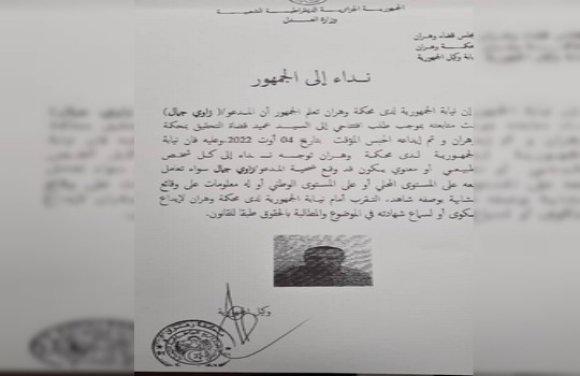 الجمهورية الجزائرية الديمقراطية الشعبية
وزارة العدل
مجلس قضاء وهران
محكمة وهران
وكيل الجمهورية
نداء إلى الجمهور
إن نيابة الجمهورية لدى محكمة وهران تعلم الجمهور أن المدعو( زاوي جمال)
متابعته بموجب طلب افتتاحي إلى السيد عميد قضاة التحقيق بمحكمة
وهران و تم إيداعه الحبس المؤقت بتاريخ 04 أوت 2022.وعليه فإن نيابة
الجمهورية لدى محكمة وهران توجه نداء إلى كل شخص
طبيعي أو معنوي يكون قد وقع ضحية المدعو/زاوي جمال سواء تعامل
معه على المستوى المحلي أو على المستوى الوطني أو له معلومات على وقائع
مشابهة بوصفه شاهد، التقرب أمام نيابة الجمهورية لدى محكمة وهران لإيداع
شكوى أو لسماع شهادته في الموضوع والمطالبة بالحقوق طبقا للقانون.
وكيل الجمهورية